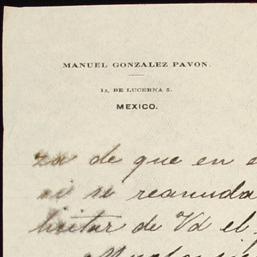 MANUEL GONZALEZ PAVON.
1a. DE LUCERNA 5.
MEXICO.
za de que en e
si se reanuda
licitar de Vd el